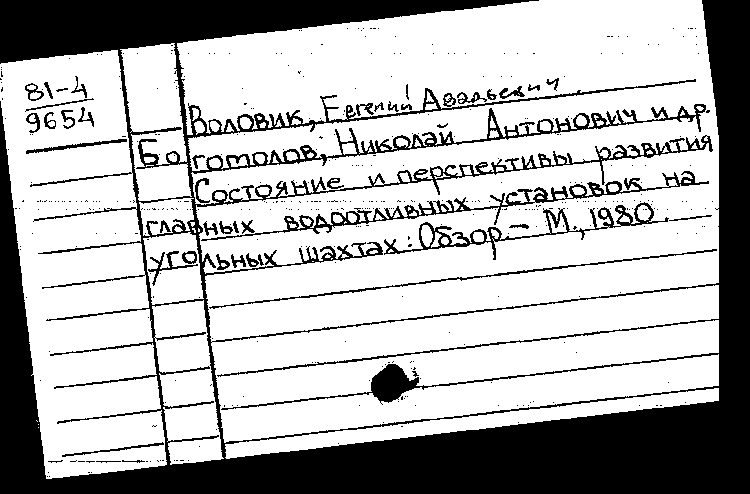 81-4
9654
Воловик, Евгений Авадьевич.
Боготолов, Николай Антонович и др.
Состояние и перспективы развития
главных водоотливных установок на
угольных шахтах: Обзор. – М., 1980.